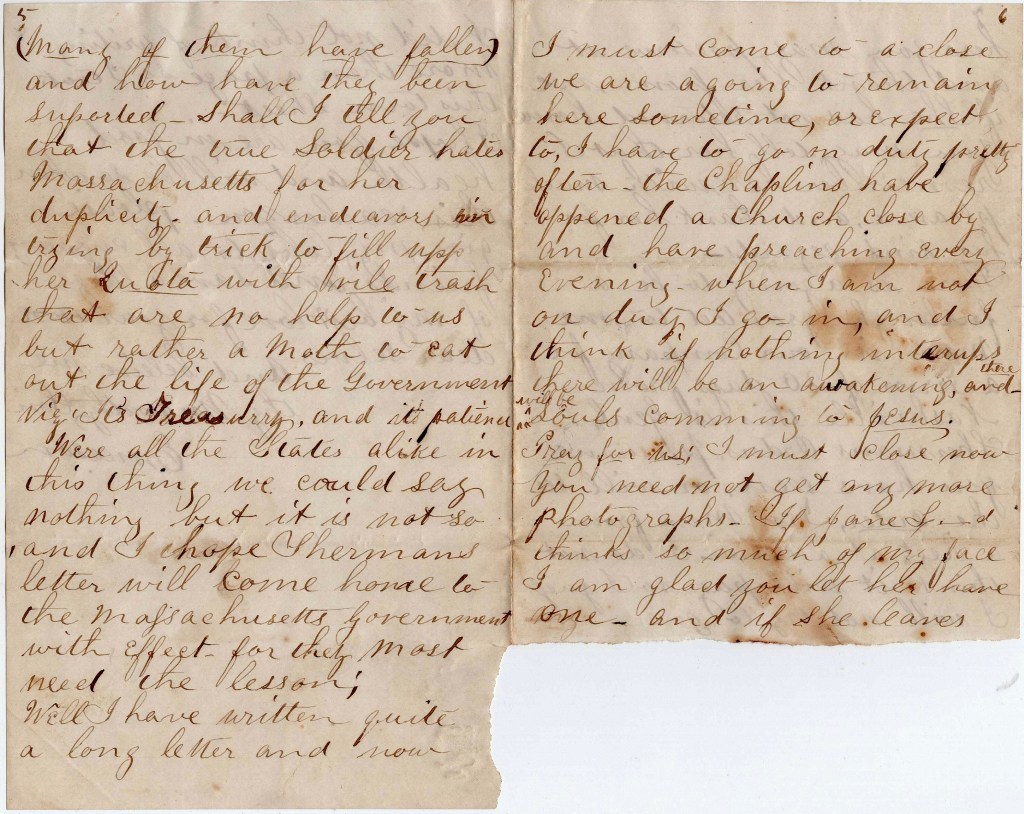 5
(Many of them have fallen)
and how have they been
suported - shall I tell you
that the true Soldier hates
Massachusetts for her
duplicity - and endeavors in
trying by trick to fill upp
her Quota with vile trash
that are no help to us
but rather a Moth to eat
out the life of the Government
Viz; It's Treasurry, and it patience
Were all the States alike in
this thing we could say
nothing but it is not so
and I hope Shermans
letter will come home to
the Massachusetts Government
with Effect - for they most
need the lesson;
Well I have written quite
a long letter and now
6
I must come to a close
we are agoing to remain
here sometime, or expect
to, I have to go on duty pretty
often - the Chaplins have
oppened a church close by
and have preaching Every
Evening - when I am not
on duty I go in, and I
think if nothing interups
there
there will be an awakening, and
will be
souls comming to Jesus.
Pray for us; I must close now
you need not get any more
photographs - If Jane
thinks so much of my face
I am glad you let her have
one - and if she leaves